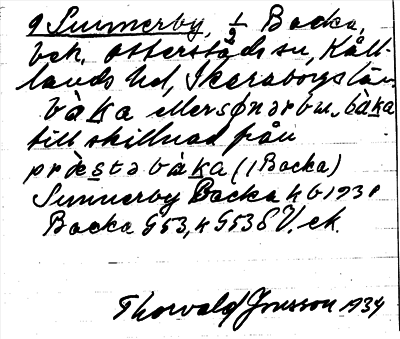 9 Sunnerby, ½ Backa,
bek, Otterstads sn, Kål-
lands hd, Skaraborgs län.
bàka eller sønərbu, bàka
till skillnad från
prɛ̀stə bàka (1 Backa)
Sunnerby Backa hb 1930
Backa G53, h G53 S V. ek.
Thorvald Jonsson 1934